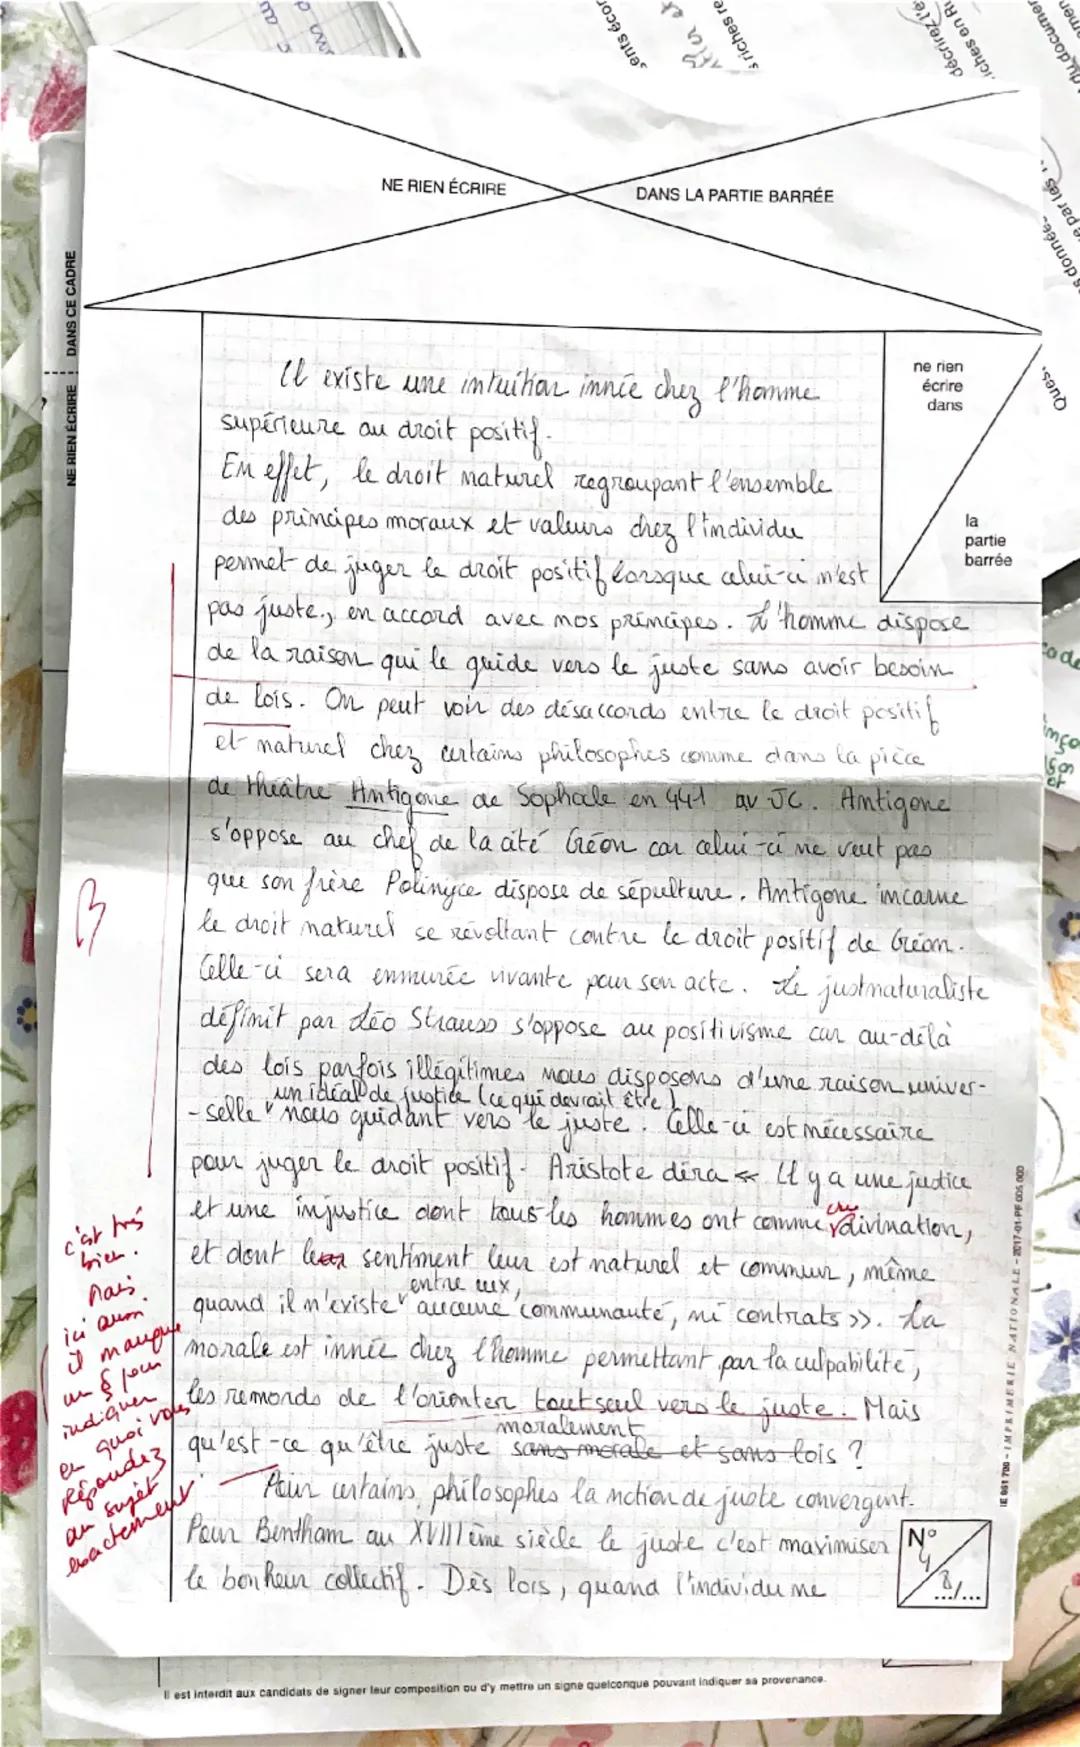 NE RIEN ÉCRIRE
DANS LA PARTIE BARRÉE
NE RIEN ÉCRIRE DANS CE CADRE
ne rien
écrire
dans
la
partie
barrée
Il existe une intuition innée chez l'homme
supérieure au droit positif.
En effet, le droit naturel regroupant l'ensemble
des principes moraux et valeurs chez l'individu
permet de juger le droit positif lorsque celui-ci n'est
pas juste, en accord avec nos principes. L'homme dispose
de la raison qui le guide vers le juste sans avoir besoin
de lois. On peut voir des désaccords entre le droit positif
et naturel chez certains philosophes comme dans la pièce
de théâtre Antigone de Sophocle en 441 av JC. Antigone
s'oppose au chef de la cité Créon car celui-ci ne veut pas
que son frère Polinyce dispose de sépulture. Antigone incarne
le droit naturel se révoltant contre le droit positif de Créon.
Celle-ci sera enmurée vivante pour son acte. Le justnaturaliste
définit par Léo Strauss s'oppose au positivisme car au-délà
des lois parfois illégitimes nous disposons d'une raison univer-
un idéal de justice (ce qui devrait être)
-selle nous guidant vers le juste. Celle-ci est nécessaire
pour juger le droit positif. Aristote dira « Il y a une justice
et une injustice dont tous les hommes ont comme divination,
et dont sentiment leur est naturel et commun, même
entre eux,
quand il n'existe aucune communauté, ni contrats ». La
morale est innée chez l'homme permettant par la culpabilité,
les remords de l'orienter tout seul vers le juste. Mais
moralement
qu'est-ce qu'être juste sans morale et sans lois ?
Pour certains philosophes la notion de juste convergent.
Pour Bentham au XVIIIème siècle le juste c'est maximiser
le bonheur collectif. Dès lors, quand l'individu ne
B
c'est très
bien.
Mais
ici aussi
il manque
un § pour
indiquer
en quoi vous
répondez
au sujet
exactement
N°
4
8
.../...
IE 951 700 - IMPRIMERIE NATIONALE - 2017-01-PF 005 000
Il est interdit aux candidats de signer leur composition ou d'y mettre un signe quelconque pouvant indiquer sa provenance.
Ques.